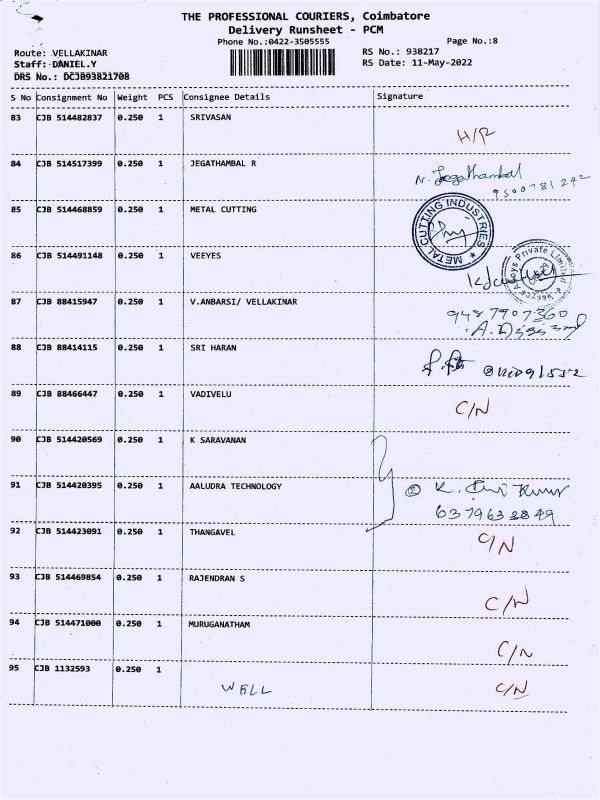 THE PROFESSIONAL COURIERS, Coimbatore
Delivery Runsheet - PCM
Phone No.:0422-3505555
Page No.:8
Route: VELLAKINAR
RS No.: 938217
Staff: DANIEL.Y
RS Date: 11-May-2022
DRS No.: DCJB938217O8
S No Consignment No Weight PCS Consignee Details Signature
83 CJB 514482837 0.250 1 SRIVASAN
84 CJB 514517399 0.250 1 JEGATHAMBAL R N. Jegathambal
9500781242
85 CJB 514468859 0.250 1 METAL CUTTING METAL CUTTING INDUSTRIES
86 CJB 514491148 0.250 1 VEEYES
87 CJB 88415947 0.250 1 V.ANBARSI/ VELLAKINAR 9487907360
88 CJB 88414115 0.250 1 SRI HARAN
89 CJB 88466447 0.250 1 VADIVELU C/N
90 CJB 514420569 0.250 1 K SARAVANAN
91 CJB 514420395 0.250 1 AALUDRA TECHNOLOGY
6379633849
92 CJB 514423091 0.250 1 THANGAVEL C/N
93 CJB 514469854 0.250 1 RAJENDRAN S C/N
94 CJB 514471000 0.250 1 MURUGANATHAM C/N
95 CJB 1132593 0.250 1 C/N